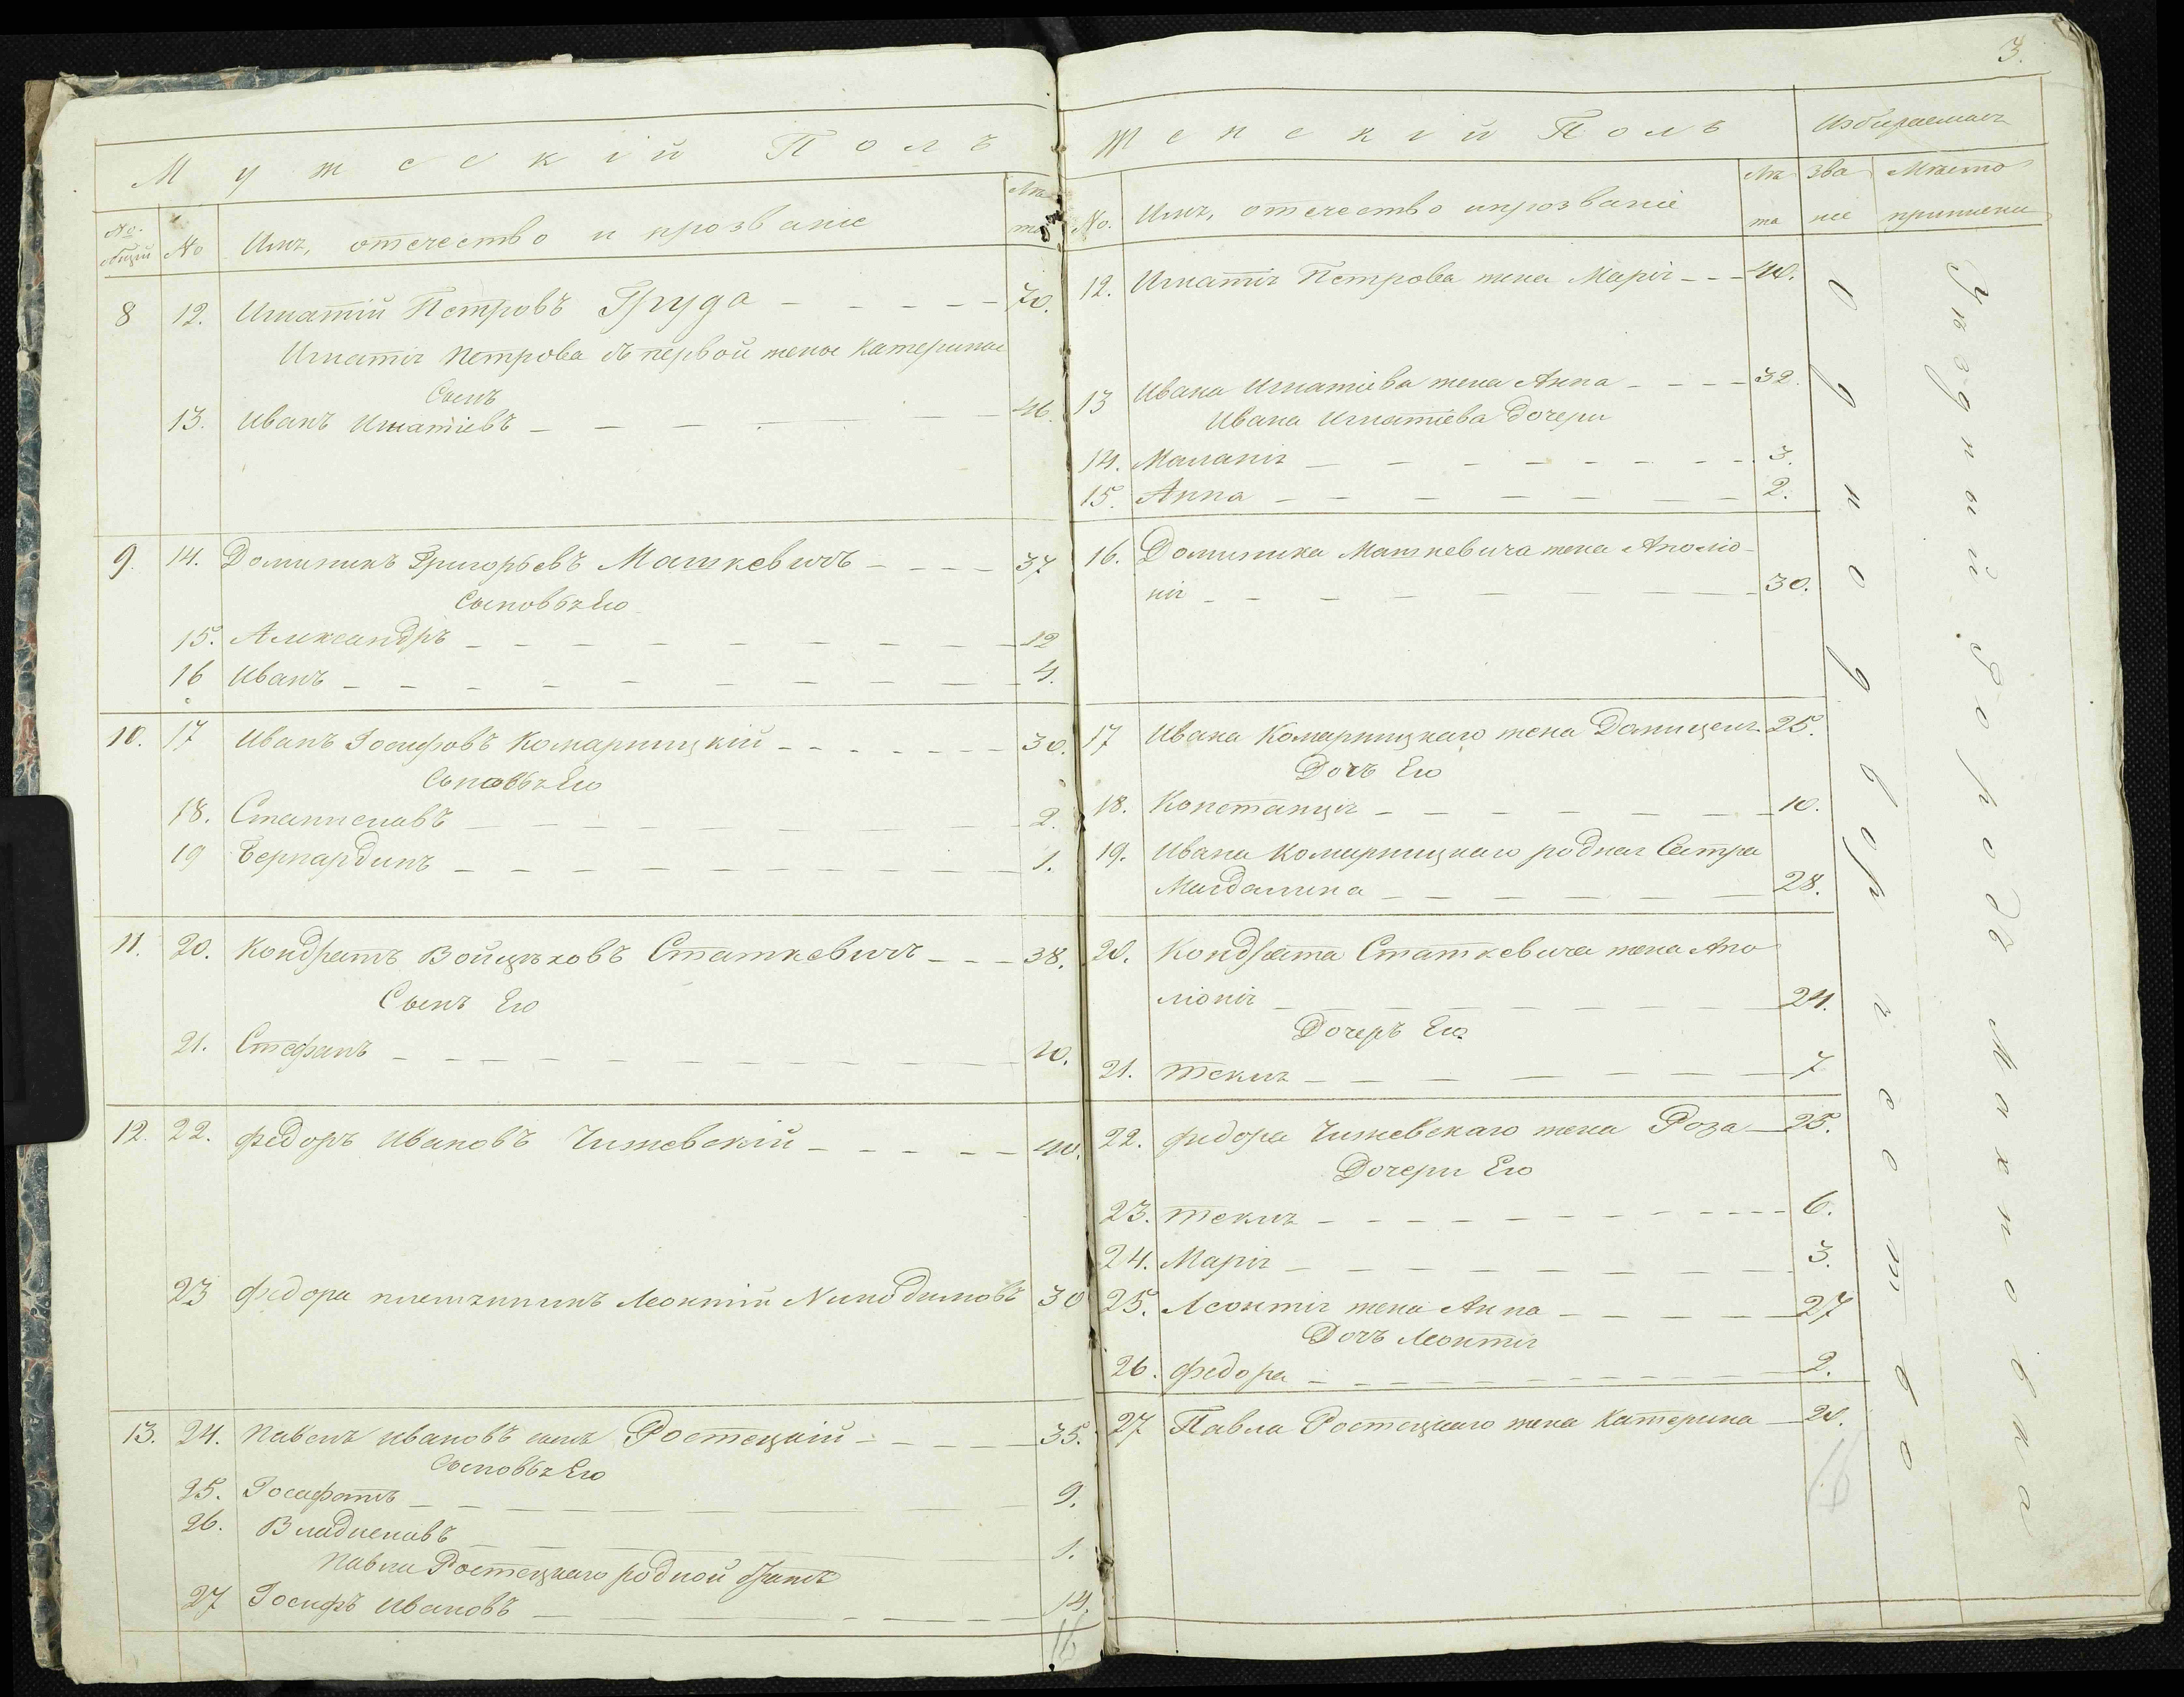 Мужескій Полъ
No. общій
No
Имя, отечество и прозваніе
Лѣта
8 12. Игнатій Петровъ Груда 70.
Игнатія Петрова съ первой жены Катерины
Сынъ
13. Иванъ Игнатіевъ 46.
9. 14. Доминикъ Григорьевъ Машкевичъ 37
Сыновья Его
15. Александръ 12
16 Иванъ 4.
10. 17 Иванъ Іосифовъ Комарницкій 30.
Сыновья Его
18. Станиславъ 2.
19 Бернардинъ 1.
11. 20. Кондратъ Войцѣховъ Статкевичъ 38.
Сынъ Его
21. Стефанъ 10.
12. 22. Федоръ Ивановъ Чижевскій 40.
23 Федора племянникъ Леонтій Никодимовъ 30
13. 24. Павелъ Ивановъ сынъ Ростецкій 35.
Сыновья Его
25. Іосафатъ 9.
26. Владиславъ 1.
Павла Ростецкаго родной братъ
27 Іосифъ Ивановъ 14.
16
3.
Женскій Полъ
Избираемая
No.
Имя, отечество и прозваніе
Лѣта
Званіе
Мѣсто приписки
12. Игнатія Петрова жена Марія 40.
13 Ивана Игнатіева жена Анна 32.
Ивана Игнатіева дочери
14. Маланія 3.
15. Анна 2.
16. Доминика Машкевича жена Аполіо-
нія 30.
17 Ивана Комарницкаго жена Доминцеля 25.
Дочь Его
18. Констанція 10.
19. Ивана Комарницкаго родная Сестра
Магдалина 28.
20. Кондрата Статкевича жена Апо
ліонія 24.
Дочерь Его
21. Текля 7
22. Федора Чижевскаго жена Роза 25.
Дочери Его
23. Текля 6.
24. Марія 3.
25. Леонтія жена Анна 27
Дочь Леонтія
26. Федора 2.
27 Павла Ростецкаго жена Катерина 20.
16
Однодворчество
Уѣздный Городъ Махновка